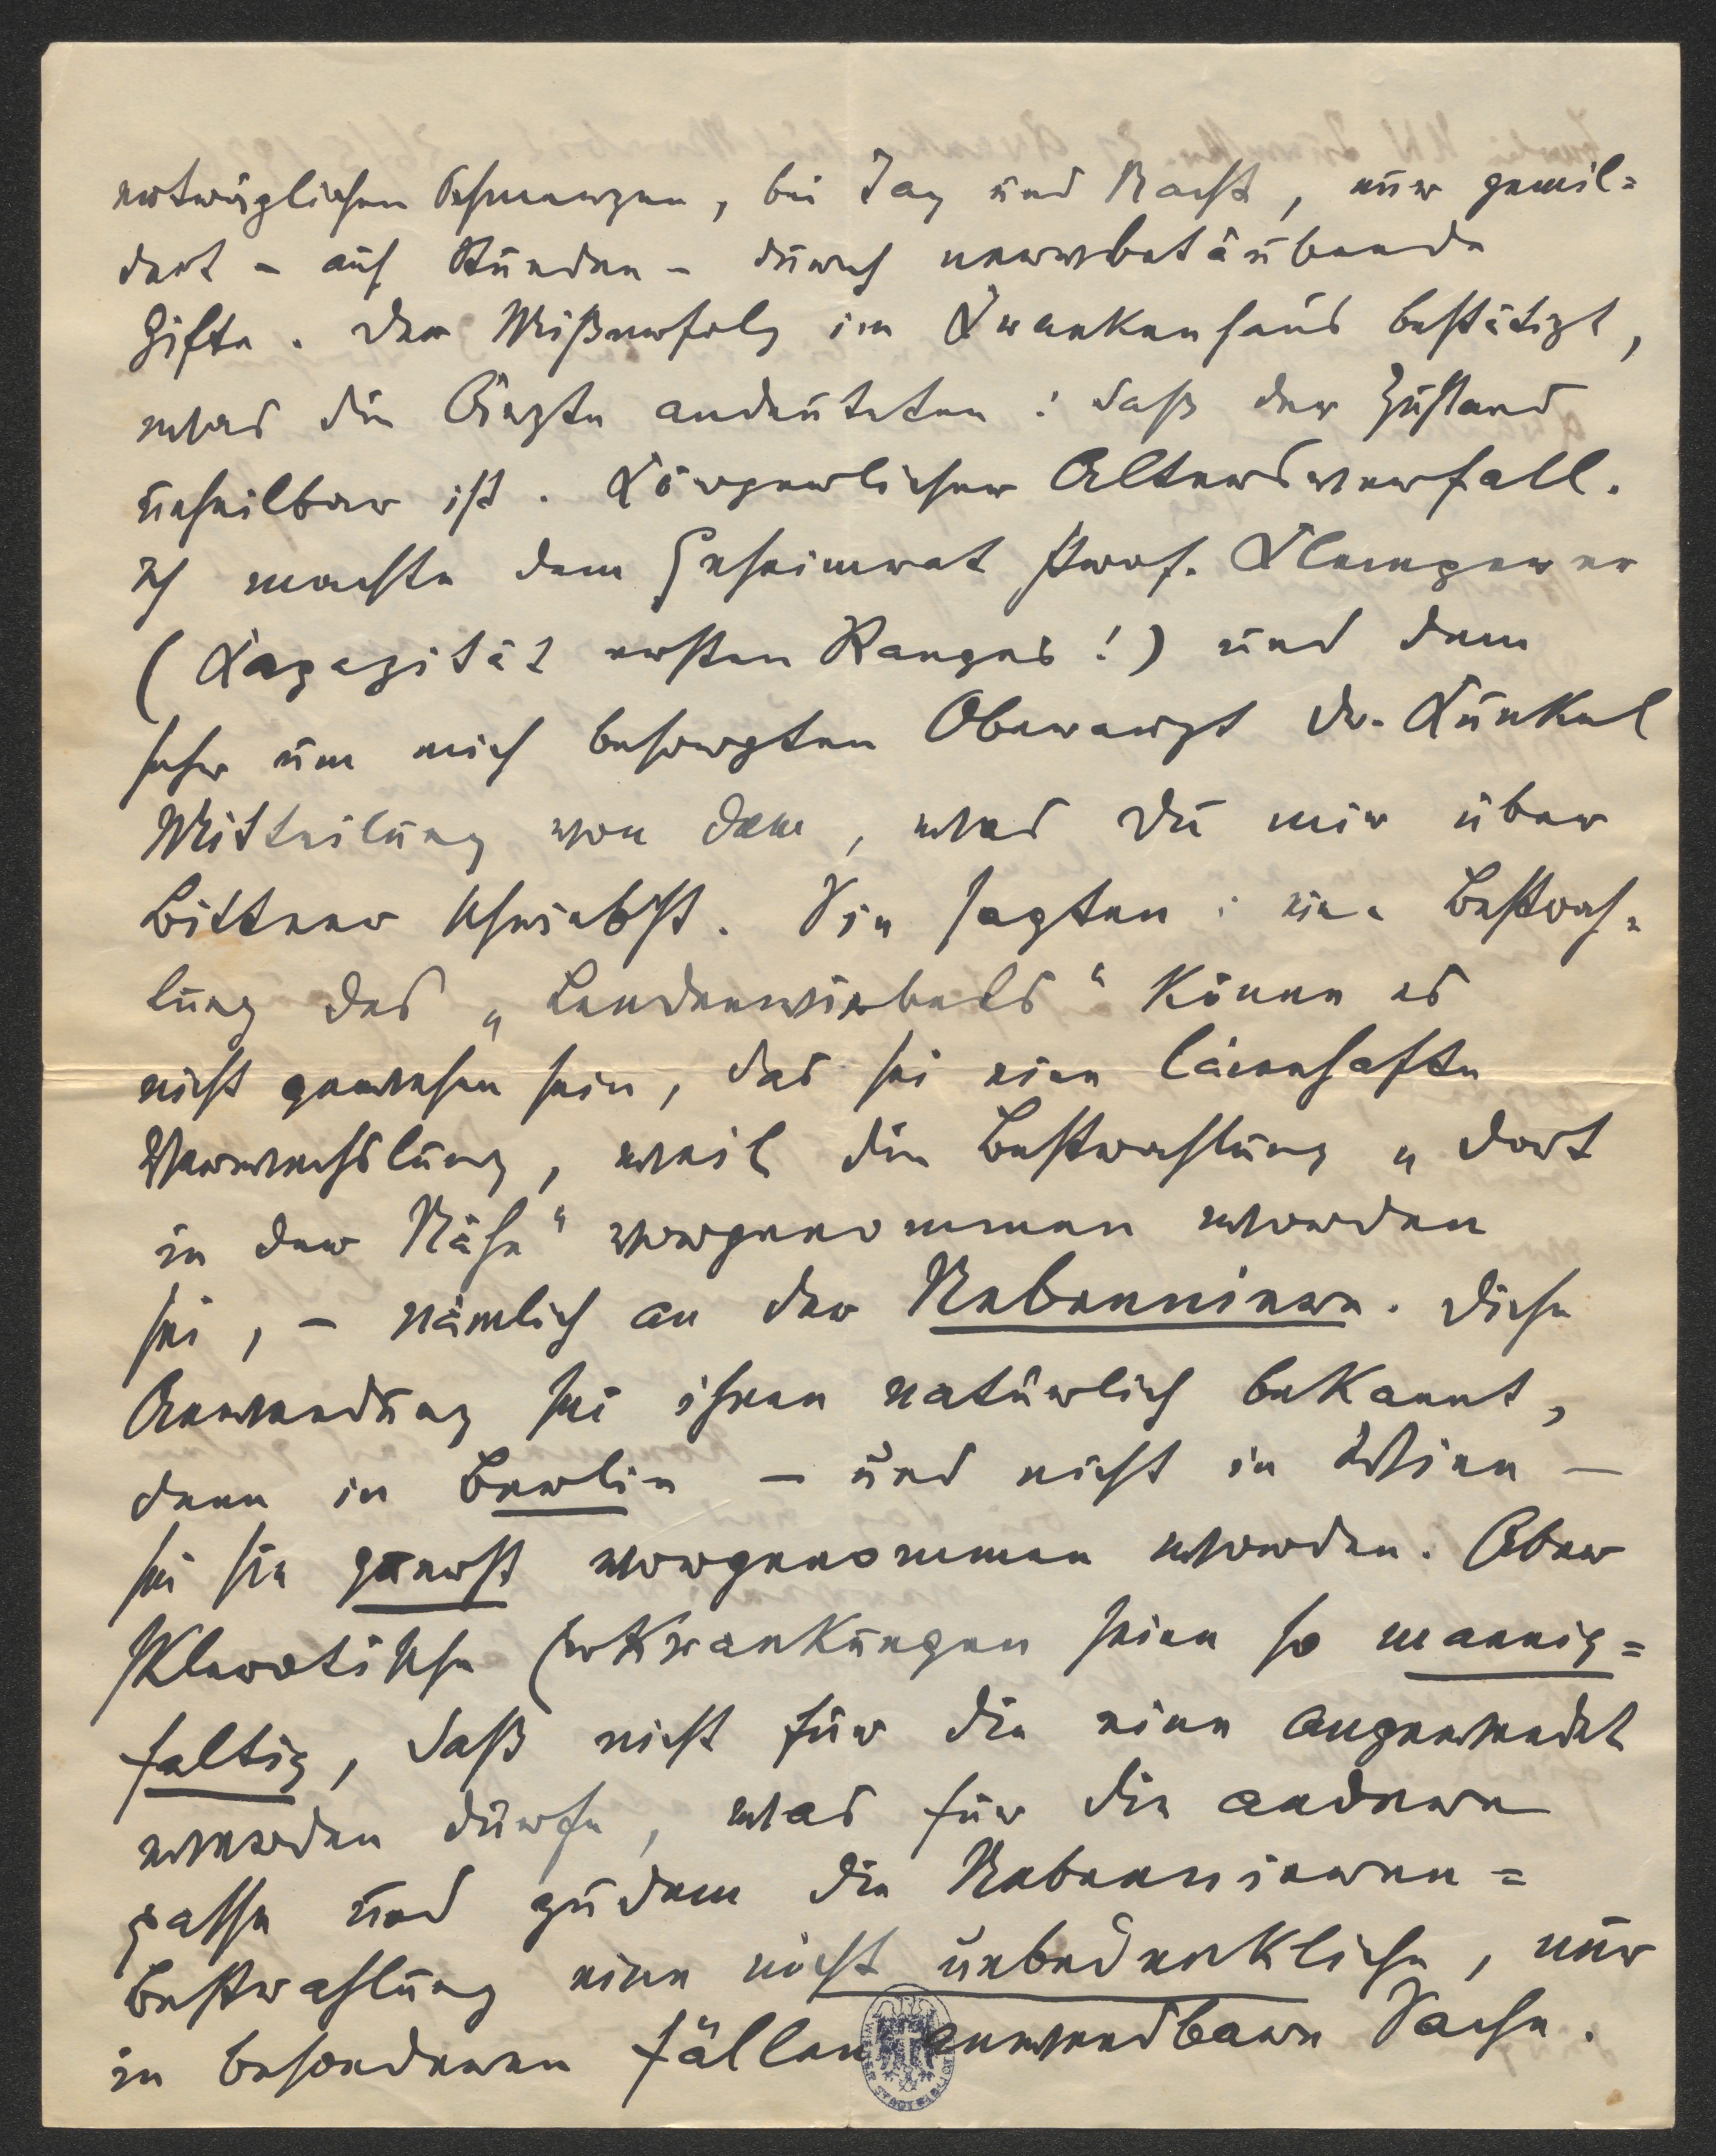 erträglichen Schmerzen, bei Tag und Nacht, nur gemil=
dert – auf Stunden – durch nervbetäubende
Gifte. Der Mißerfolg im Krankenhaus bestätigt,
was die Ärzte andeuteten: daß der Zustand
unheilbar ist. Körperlicher Altersverfall.
Ich machte dem Geheimrat Prof. Klemperer
(Kapazität ersten Ranges!) und dem
sehr um mich besorgten Oberarzt Dr. Künkel
Mitteilung von dem, was Du mir über
Bittner schriebst. Sie sagten: eine Bestrah=
lung des „Lendenwirbels" könne es
nicht gewesen sein, das sei eine laienhafte
Verwechslung, weil die Bestrahlung „dort
in der Nähe" vorgenommen worden
sei, – nämlich an der Nebenniere. Diese
Anwendung sei ihnen natürlich bekannt,
denn in Berlin – und nicht in Wien –
sei sie zuerst vorgenommen worden. Aber
sklerotische Erkrankungen seien so mannig=
faltig, daß nicht für die eine angewendet
werden dürfe, was für die andere
passe und zudem die Nebennieren=
bestrahlung eine nicht unbedenkliche, nur
in besonderen Fällen anwendbare Sache.